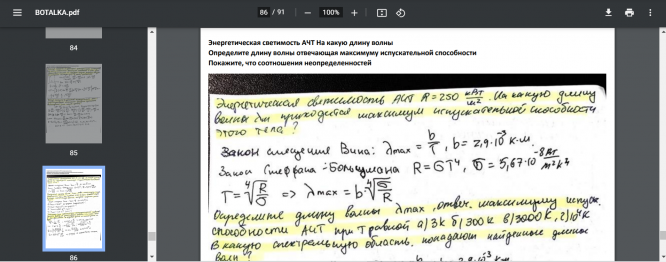 BOTALKA.pdf
86 / 91
100%
84
85
86
Энергетическая светимость АЧТ На какую длину волны
Определите длину волны отвечающая максимуму испускательной способности
Покажите, что соотношения неопределенностей
Энергетическая светимость АЧТ R=250 кВт/м². На какую длину
волны λm приходится максимум испускательной способности
этого тела?
Закон смещения Вина: λmax = b/T, b = 2,9·10⁻³ К·м.
Закон Стефана-Больцмана R = σT⁴, σ = 5,67·10⁻⁸ Вт/м²К⁴
T = ⁴√(R/σ) => λmax = b·⁴√(σ/R)
Определите длину волны λmax, отвеч. максимуму испуск.
способности АЧТ при T равной а) 3К б) 300К в) 3000К, г) 10⁴К
В какую спектральную область попадают найденные длины
волн?